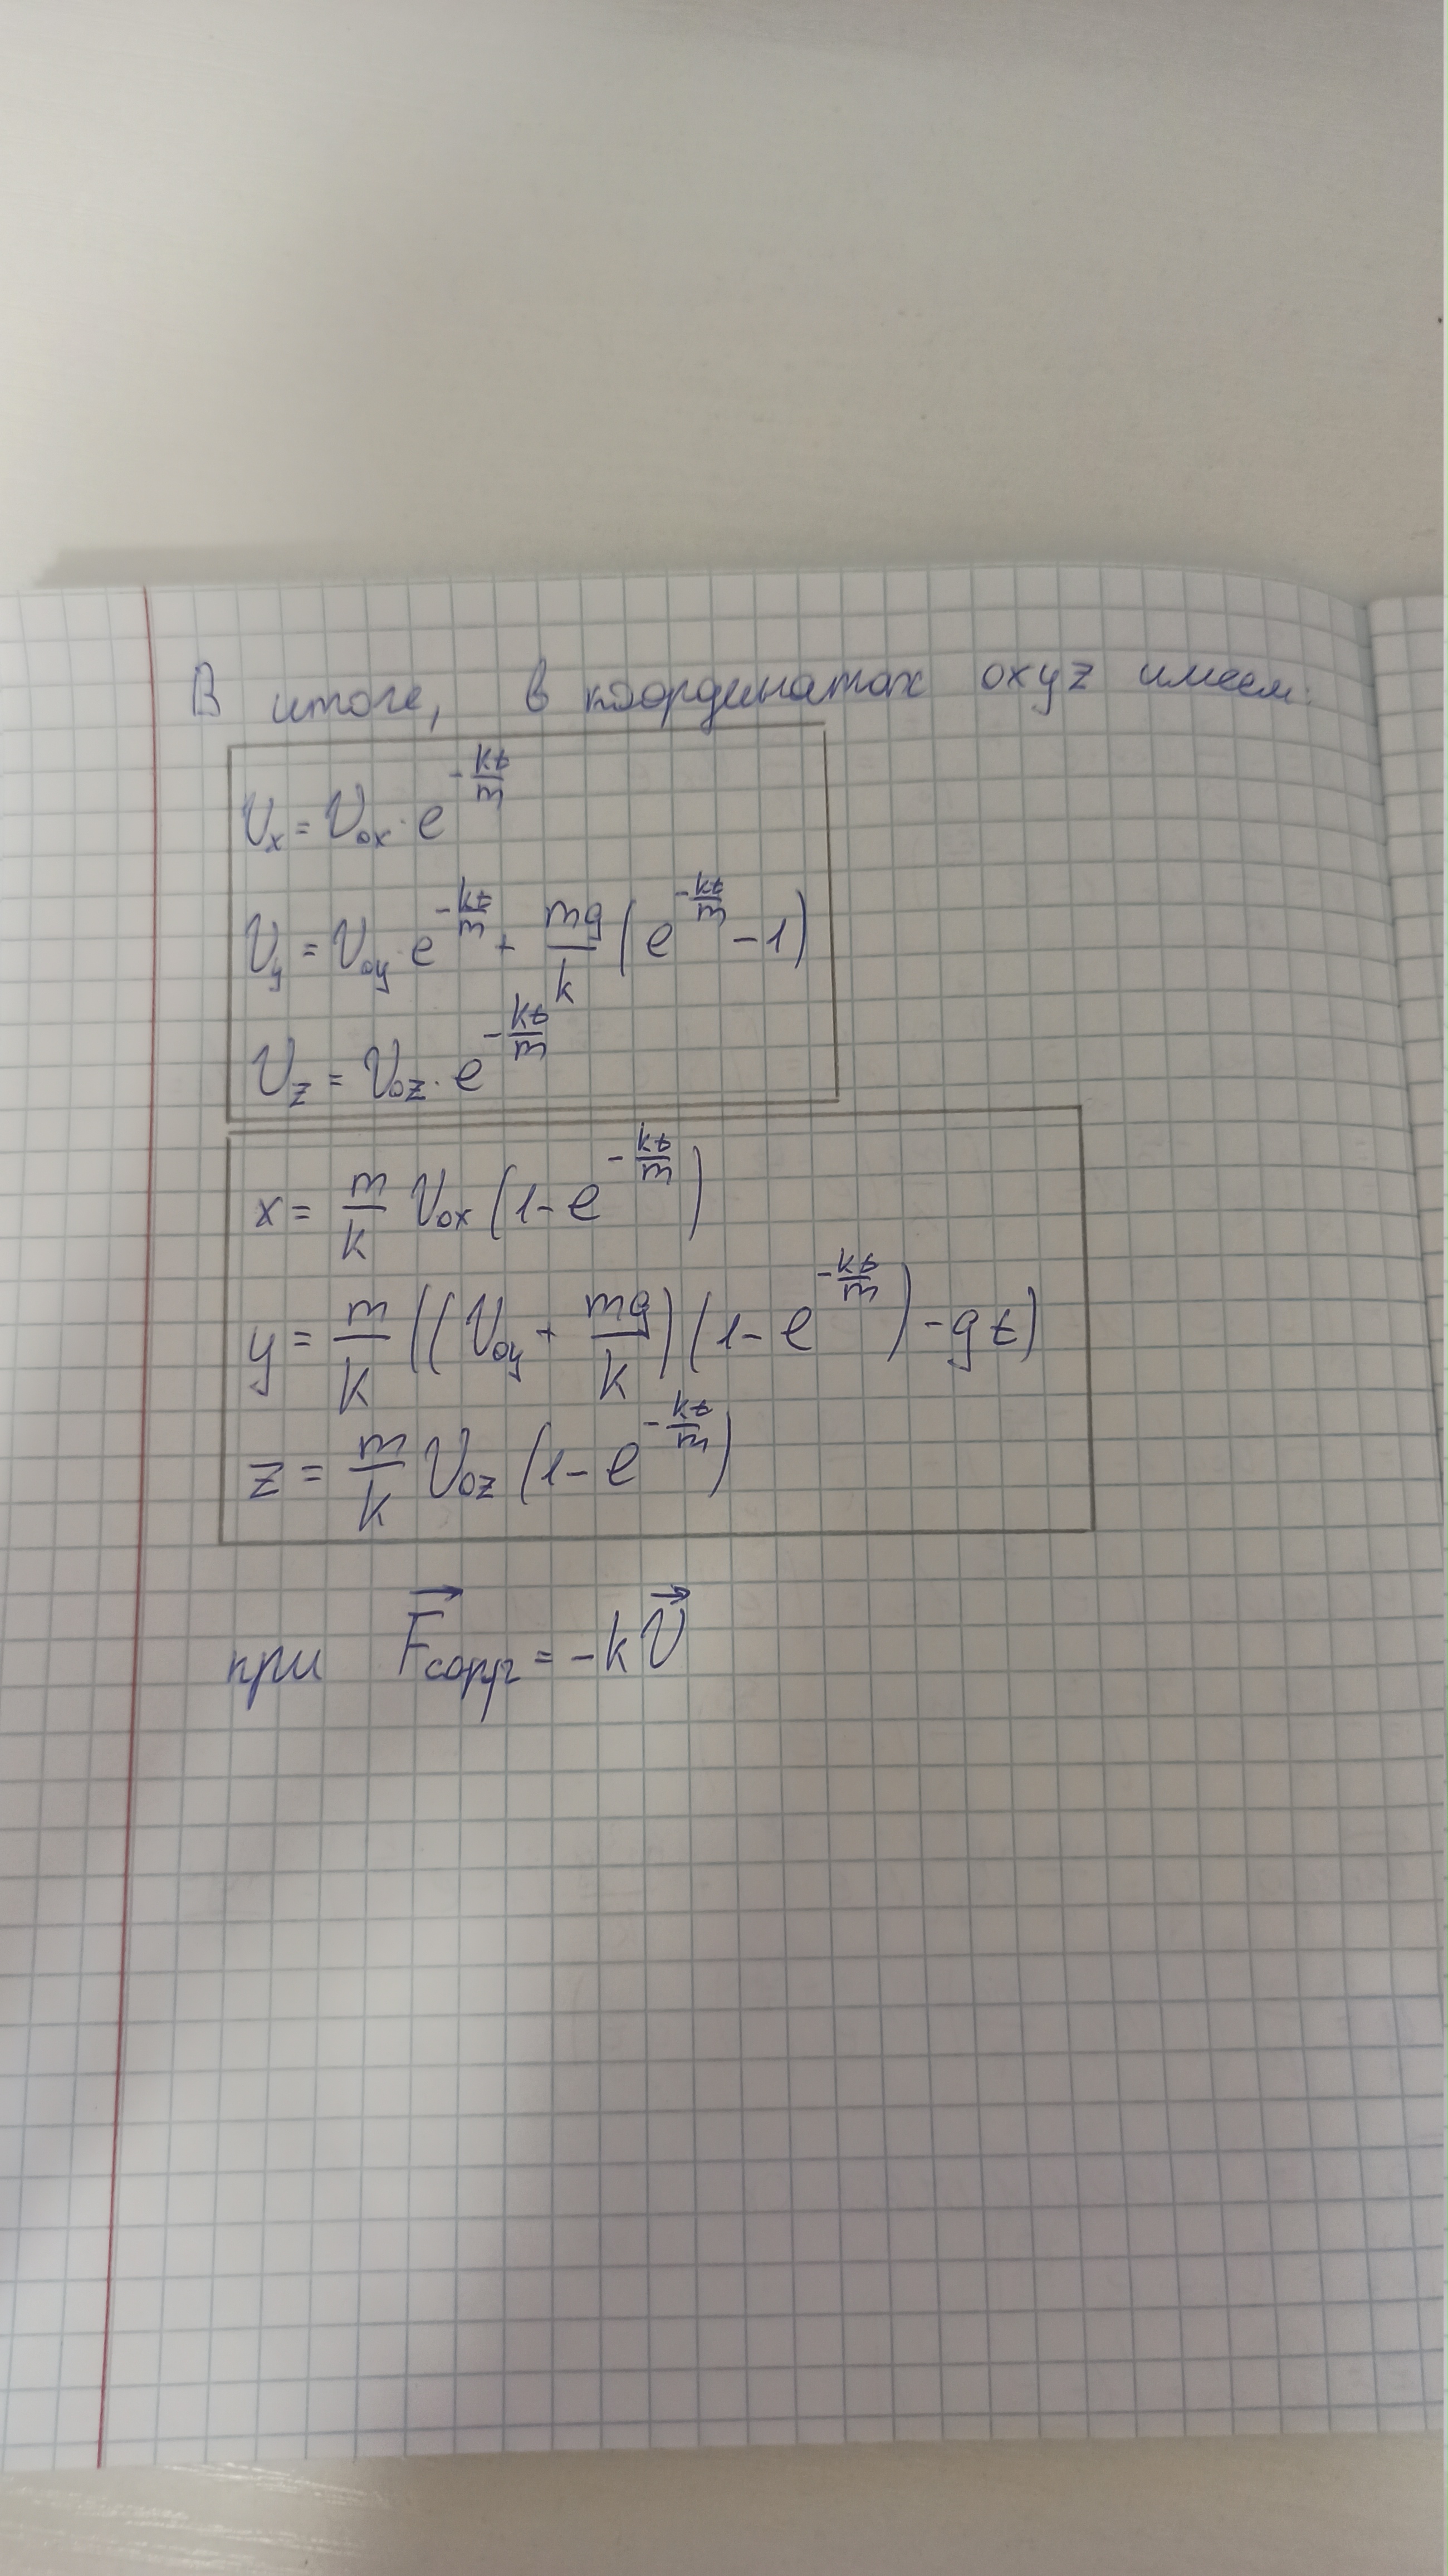 В итоге, в координатах oxyz имеем:
Vx = Vox · e^(-kt/m)
Vy = Voy · e^(-kt/m) + mg/k (e^(-kt/m) - 1)
Vz = Voz · e^(-kt/m)
x = m/k Vox (1 - e^(-kt/m))
y = m/k ((Voy + mg/k)(1 - e^(-kt/m)) - gt)
z = m/k Voz (1 - e^(-kt/m))
при F⃗сопр = -kV⃗